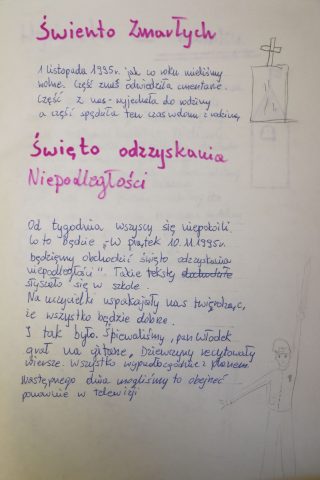 Świento Zmarłych
1 listopada 1995r. jak co roku mieliśmy
wolne. Część znas odwiedziła cmentarze
Część z nas wyjechała do rodziny
a część spędzała ten czas w domu z rodziną
Święto odzzyskania
Niepodległości
Od tygodnia wszyscy się niepokoili
co to będzie „W piątek 10.11.1995r.
będziemy obchodzić święto odzyskania
niepodległości". Takie teksty
słyszało się w szkole.
Nauczycielki uspakajały nas twierdząc,
że wszystko będzie dobrze.
I tak było. Śpiewaliśmy, pan Włodek
grał na gitarze, Dziewczyny recytowały
wiersze. Wszystko wypadło zgodnie z planem
Następnego dnia mogliśmy to obejrzeć
ponownie w telewizji